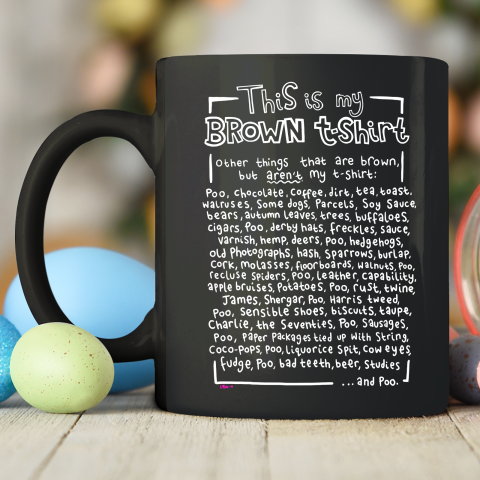 This is my
BROWN t-Shirt
other things that are brown,
but aren't my t-shirt:
Poo, chocolate, coffee, dirt, tea, toast.
walruses, Some dogs, Parcels, Soy Sauce,
bears, autumn leaves, trees, buffaloes,
cigars, Poo, derby hats, freckles, sauce,
varnish, hemp, deers, Poo, hedgehogs,
old Photographs, hash, Sparrows, burlap.
Cork, molasses, floorboards, walnuts, Poo,
recluse spiders, Poo, leather, capability,
apple bruises, Potatoes, Poo, rust, twine,
James, Shergar, Poo, Harris tweed,
Poo, Sensible Shoes, biscuits, taupe,
Charlie, the Seventies, Poo, Sausages,
Poo, Paper Packages tied up with String,
Coco-Pops, Poo, Liquorice Spit, Cow eyes,
fudge, Poo, bad teeth, beer, Studies
...and Poo.